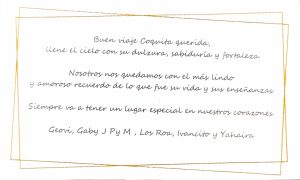 Buen viaje Coquita querida,
llene el cielo con su dulzura, sabiduría y fortaleza.
Nosotros nos quedamos con el más lindo
y amoroso recuerdo de lo que fue su vida y sus enseñanzas.
Siempre va a tener un lugar especial en nuestros corazones.
Geovi, Gaby J P y M , Los Roa, Ivancito y Yahaira